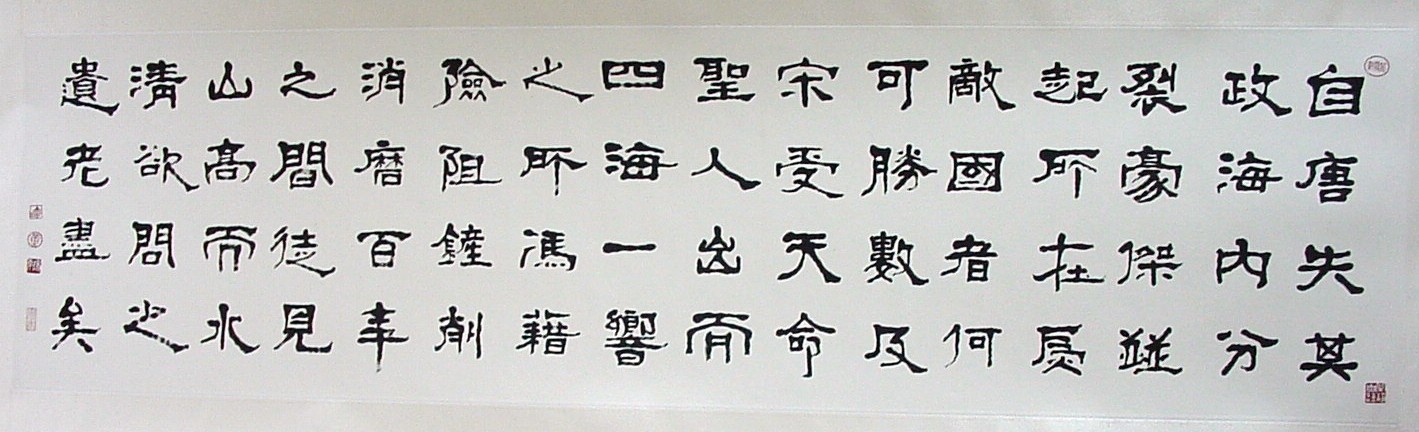 自唐失其
政海内分
裂豪傑並
起所在為
敵國者何
可勝數及
宋受天命
聖人出而
四海一響
之所馮藉
險阻鏟削
消磨百年
之間徒見
山高而水
清欲問之
遺老盡矣